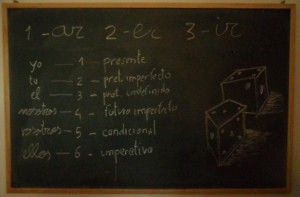 1 - ar 2 - er 3 - ir
yo — 1 - presente
tu — 2 - pret. imperfecto
el — 3 - pret. indefinido
nosotros — 4 - futuro imperfecto
vosotros — 5 - condicional
ellos — 6 - imperativo